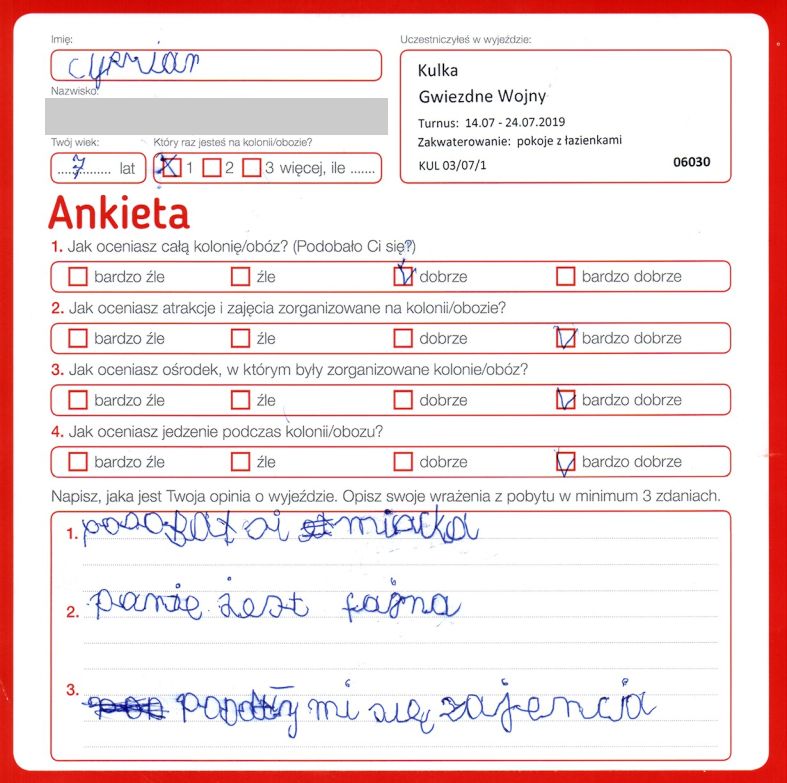 Imię:
cyprian
Uczestniczyłeś w wyjeździe:
Kulka
Gwiezdne Wojny
Turnus: 14.07 - 24.07.2019
Zakwaterowanie: pokoje z łazienkami
KUL 03/07/1 06030
Nazwisko:
Twój wiek: Który raz jesteś na kolonii/obozie?
7 lat X 1 2 3 więcej, ile .......
Ankieta
1. Jak oceniasz całą kolonię/obóz? (Podobało Ci się?)
bardzo źle źle dobrze bardzo dobrze
2. Jak oceniasz atrakcje i zajęcia zorganizowane na kolonii/obozie?
bardzo źle źle dobrze bardzo dobrze
3. Jak oceniasz ośrodek, w którym były zorganizowane kolonie/obóz?
bardzo źle źle dobrze bardzo dobrze
4. Jak oceniasz jedzenie podczas kolonii/obozu?
bardzo źle źle dobrze bardzo dobrze
Napisz, jaka jest Twoja opinia o wyjeździe. Opisz swoje wrażenia z pobytu w minimum 3 zdaniach.
1.
2. panię żest fajna
3. mi się zajencia